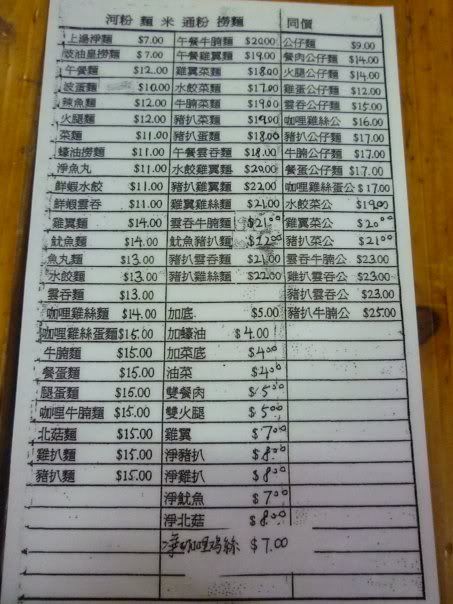 河粉 麵 米 通粉 撈麵 同價
上湯淨麵 $7.00 午餐牛腩麵 $20.00 公仔麵 $9.00
豉油皇撈麵 $7.00 午餐雞翼麵 $19.00 餐肉公仔麵 $14.00
午餐麵 $12.00 雞翼菜麵 $18.00 火腿公仔麵 $14.00
皮蛋麵 $10.00 水餃菜麵 $17.00 雞蛋公仔麵 $12.00
辣魚麵 $12.00 牛腩菜麵 $19.00 雲吞公仔麵 $15.00
火腿麵 $12.00 豬扒菜麵 $19.00 咖喱雞絲公 $16.00
菜麵 $11.00 豬扒蛋麵 $18.00 豬扒公仔麵 $17.00
蠔油撈麵 $11.00 午餐雲吞麵 $18.00 牛腩公仔麵 $17.00
淨魚丸 $11.00 水餃雞翼麵 $20.00 餐蛋公仔麵 $17.00
鮮蝦水餃 $11.00 豬扒雞翼麵 $22.00 咖喱雞絲蛋公 $17.00
鮮蝦雲吞 $11.00 雞翼雞絲麵 $21.00 水餃菜公 $19.00
雞翼麵 $14.00 雲吞牛腩麵 $21.00 雞翼菜公 $20.00
魷魚麵 $14.00 魷魚豬扒麵 $22.00 豬扒菜公 $21.00
魚丸麵 $13.00 豬扒雲吞麵 $21.00 雲吞牛腩公 $23.00
水餃麵 $13.00 豬扒雞絲麵 $22.00 雞扒雲吞公 $23.00
雲吞麵 $13.00 豬扒雲吞公 $23.00
咖喱雞絲麵 $14.00 加底 $5.00 豬扒牛腩公 $25.00
咖喱雞絲蛋麵 $15.00 加蠔油 $4.00
牛腩麵 $15.00 加菜底 $4.00
餐蛋麵 $15.00 油菜 $4.00
腿蛋麵 $15.00 雙餐肉 $5.00
咖喱牛腩麵 $15.00 雙火腿 $5.00
北菇麵 $15.00 雞翼 $7.00
雞扒麵 $15.00 淨豬扒 $8.00
豬扒麵 $15.00 淨雞扒 $8.00
淨魷魚 $7.00
淨北菇 $8.00
淨咖喱鸡絲 $7.00